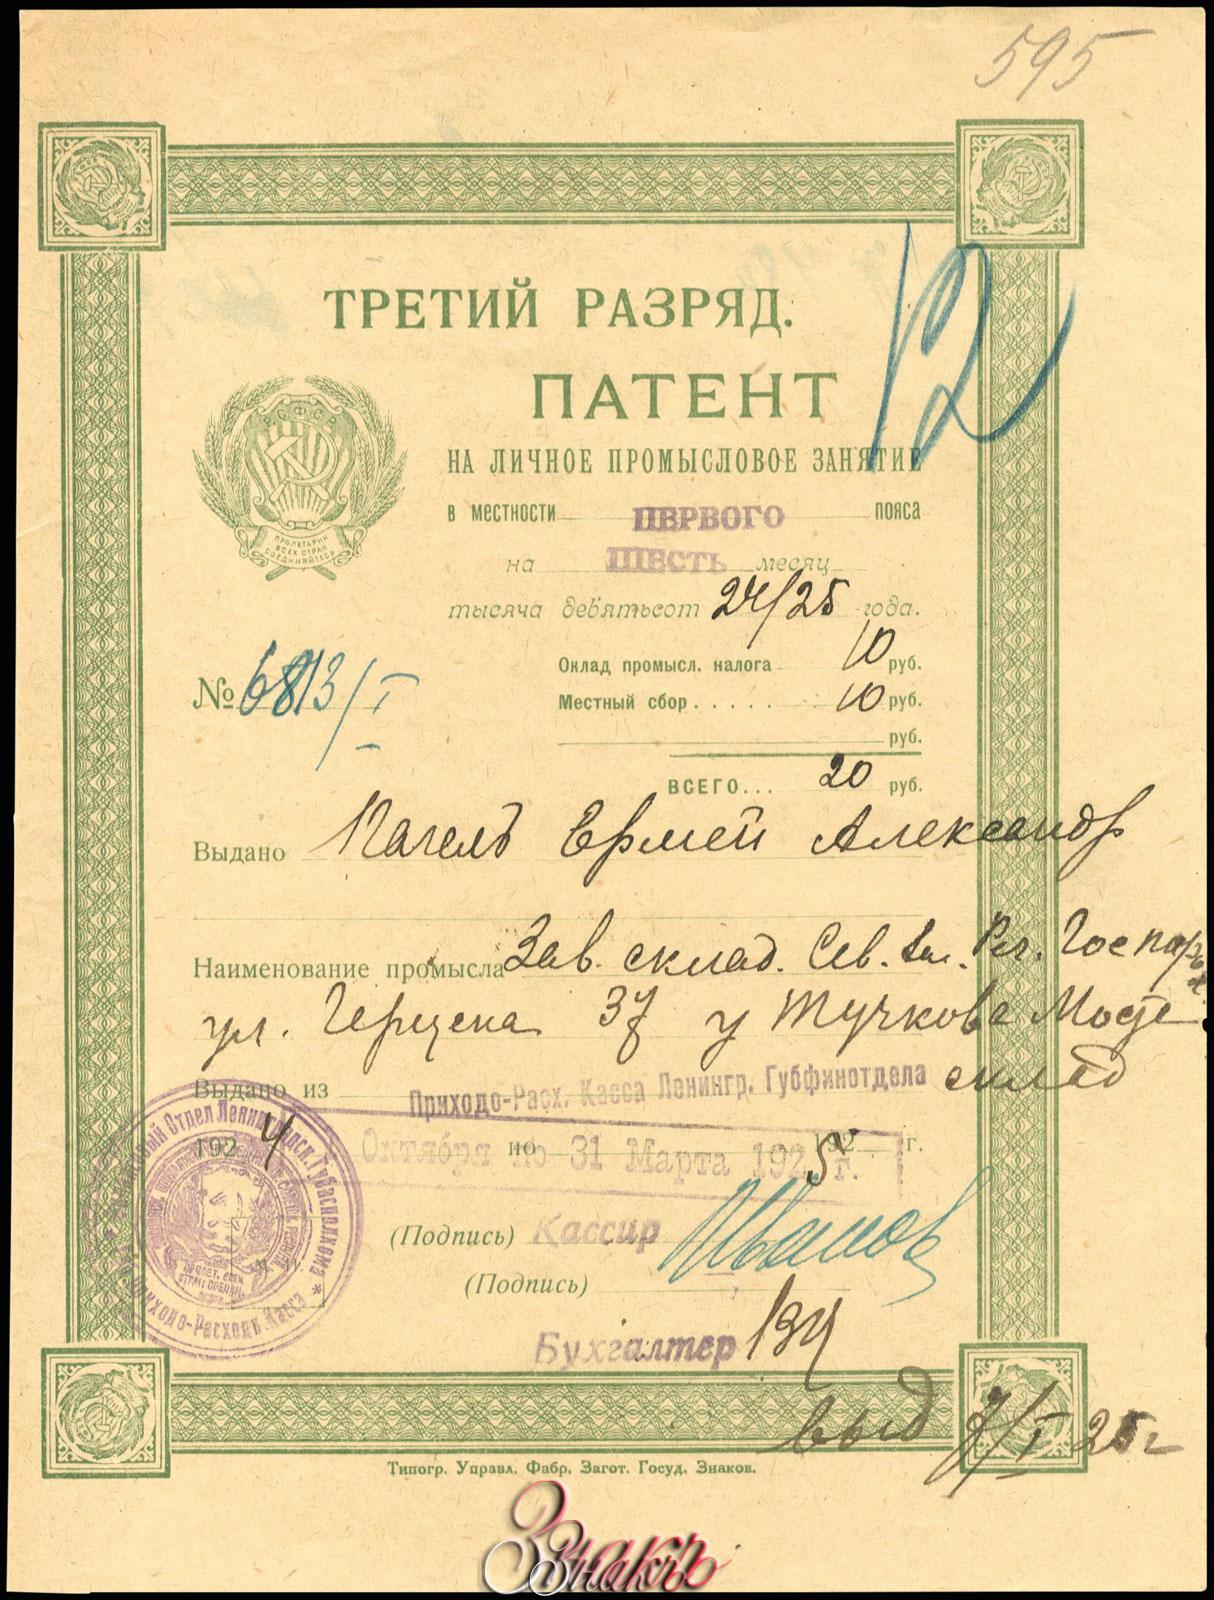 595
12
ТРЕТИЙ РАЗРЯД.
ПАТЕНТ
НА ЛИЧНОЕ ПРОМЫСЛОВОЕ ЗАНЯТИЕ
в местности ПЕРВОГО пояса
на ШЕСТЬ месяц
тысяча девятьсот 24/25 года.
Оклад промысл. налога 10 руб.
Местный сбор ..... 10 руб.
руб.
ВСЕГО... 20 руб.
РСФСР
ПРОЛЕТАРИИ
ВСЕХ СТРАН
СОЕДИНЯЙТЕСЬ
№ 6813/I
Выдано Нагель Ермей Александр
Наименование промысла Зав. склад. Сев. Зап. Госпар
ул. Герцена 37 у Тучкова Моста
склад
Выдано из Приходо-Расх. Касса Ленингр. Губфинотдела
1924 192 г.
Октября по 31 Марта 1925 г.
(Подпись) Кассир Иванов
(Подпись)
Бухгалтер
выд 7/I 25 г
Финансовый Отдел Ленинградск. Губисполкома * Приходо-Расходн. Касса *
М. П.
Типогр. Управл. Фабр. Загот. Госуд. Знаков.
Знакъ